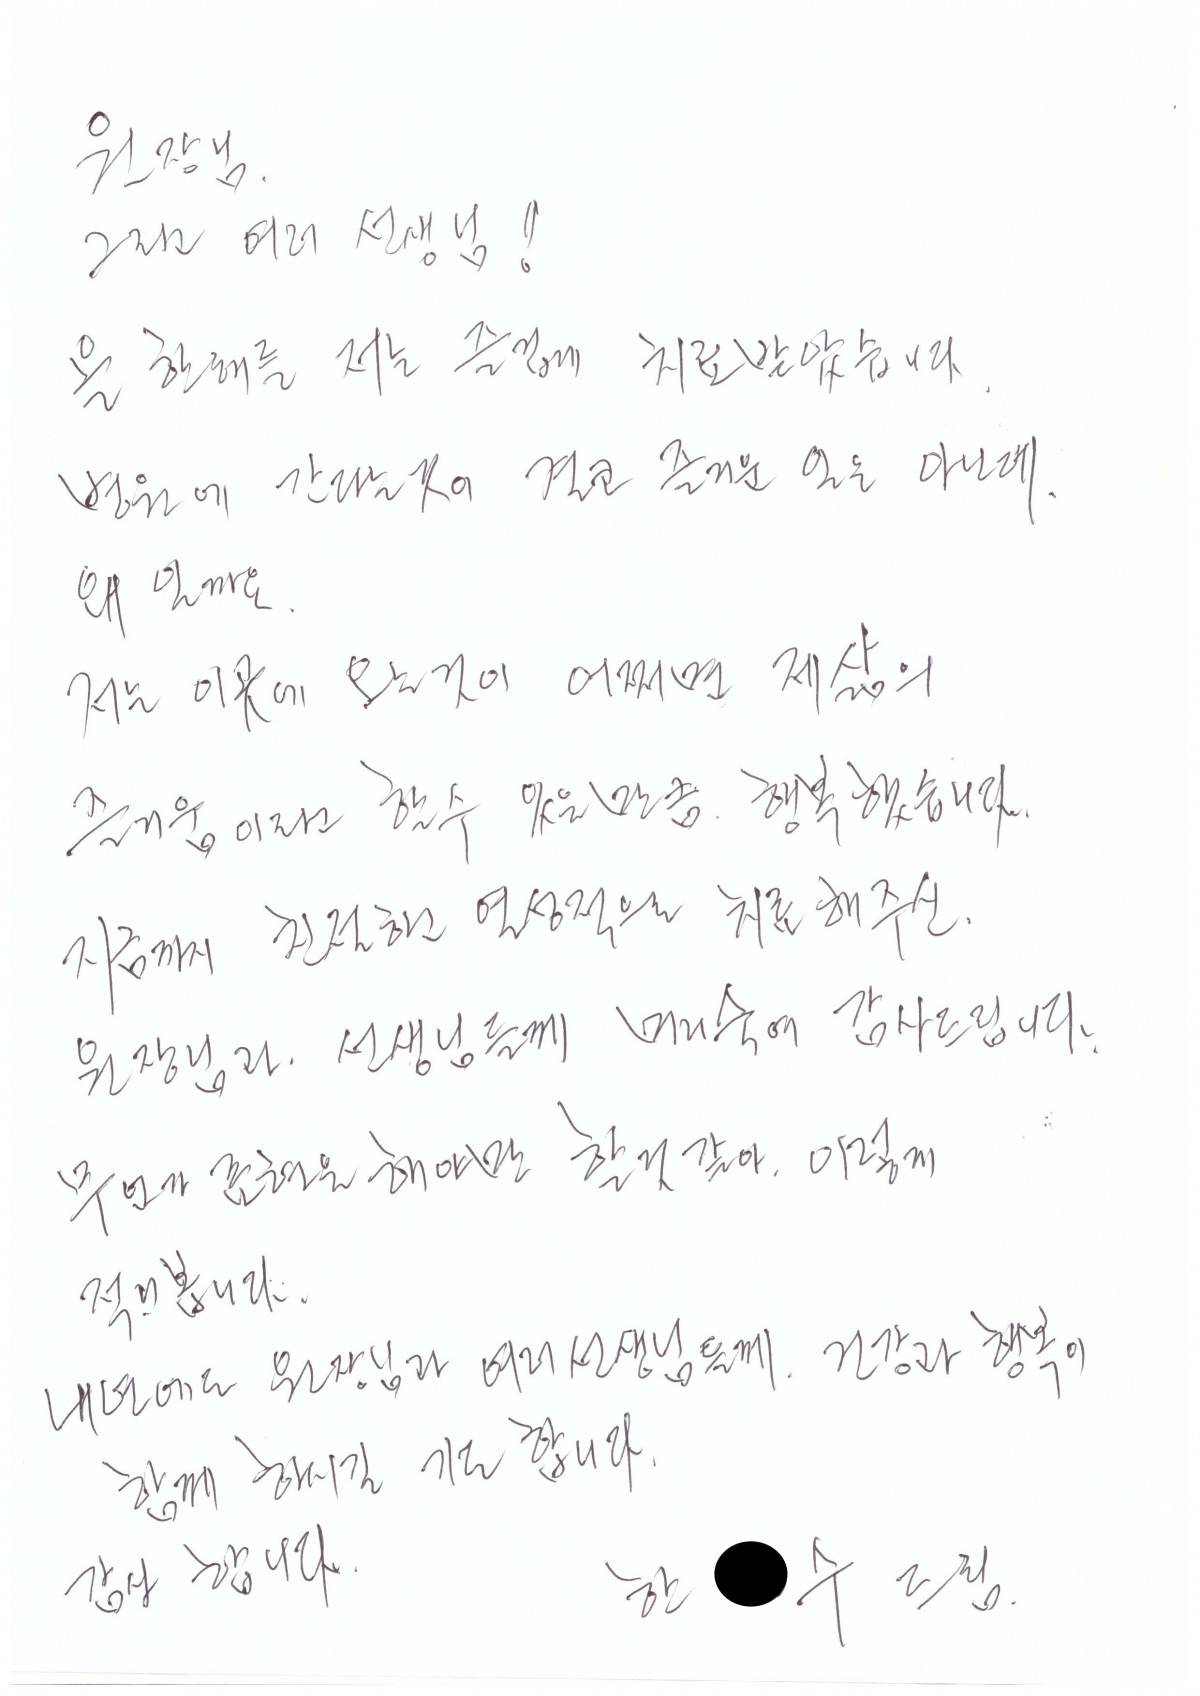 원장님.
그리고 여러 선생님!
올 한해를 저는 즐겁게 치료받았습니다.
병원에 간다는것이 결코 즐거운 일은 아닌데.
왜 일까요.
저는 이곳에 오는것이 어쩌면 제삶의
즐거움이라고 할수 있을만큼. 행복했습니다.
지금까지 친절하고 열성적으로 치료해주신.
원장님과. 선생님들께 머리숙여 감사드립니다.
무언가 표현을 해야만 할것 같아. 이렇게
적어봅니다.
내년에도 원장님과 여러선생님들께. 건강과 행복이
함께 하시길 기도 합니다.
감사 합니다. 한 수 드림.